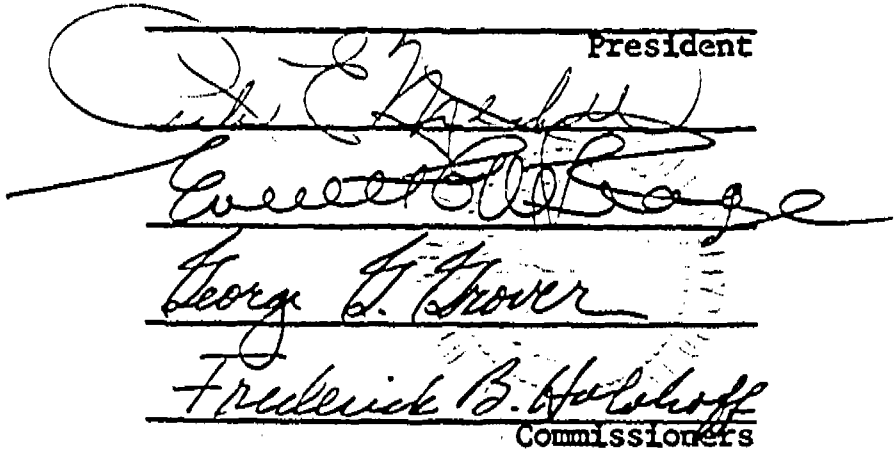 President
E.
Everett C. McKeage
George G. Grover
Frederick B. Holoboff
Commissioners